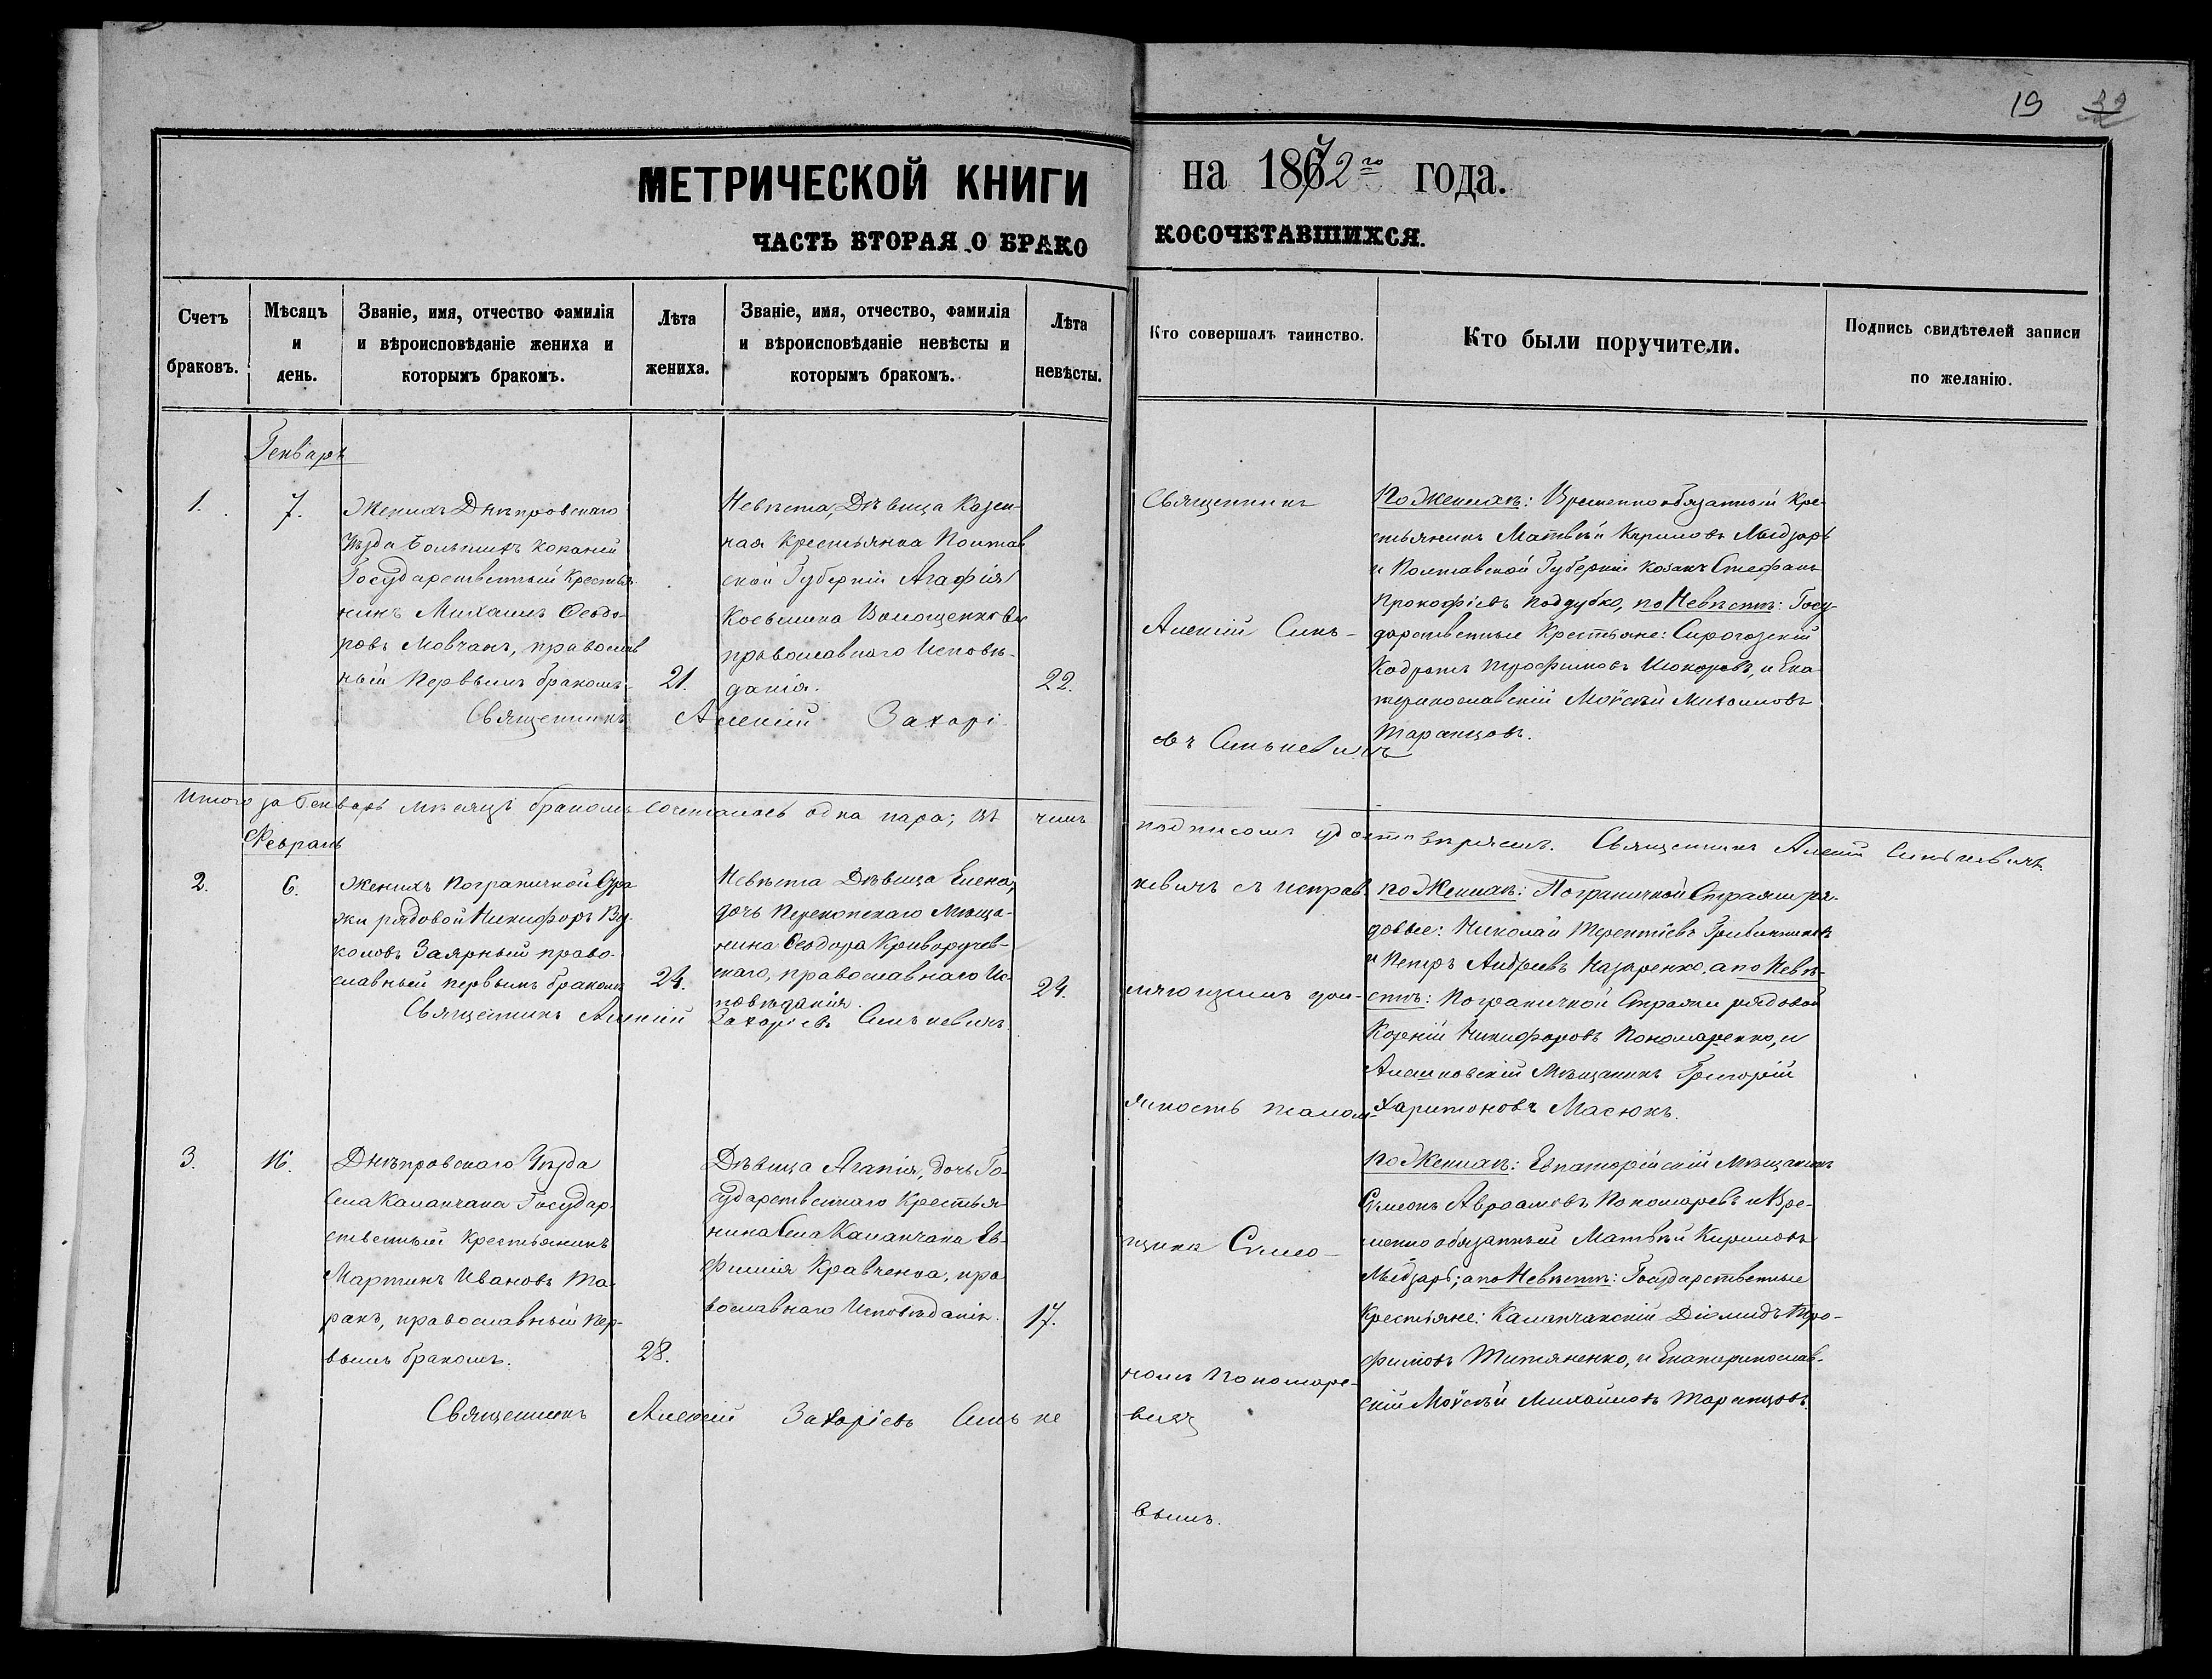 19 32
МЕТРИЧЕСКОЙ КНИГИ на 1872го года.
ЧАСТЬ ВТОРАЯ О БРАКОСОЧЕТАВШИХСЯ.
Счетъ браковъ.
Мѣсяцъ и день.
Званіе, имя, отчество фамилія
и вѣроисповѣданіе жениха и
которымъ бракомъ.
Лѣта жениха.
Званіе, имя, отчество, фамилія
и вѣроисповѣданіе невѣсты и
которымъ бракомъ.
Лѣта невѣсты.
Кто совершалъ таинство.
Кто были поручители.
Подпись свидѣтелей записи
по желанію.
Генварь
1.
7.
Женихъ Днѣпровскаго
Уѣзда Большихъ Копаней
Государственный Крестья-
нинъ Михаилъ Ѳеодо-
ровъ Мовчанъ, православ
ный первымъ бракомъ.
21.
Невѣста, Дѣвица Казен-
ная Крестьянка Полтав
ской Губерніи Агафія
Косьмина
православнаго Исповѣ-
данія.
22.
Священникъ Алексій Захарі-
евъ Синькевичъ
Священникъ
Алексій Синь-
По Женихѣ: Временнообязанный Кре-
стьянинъ Матвѣй Кириловъ Мыдзарь
и Полтавской Губерніи козакъ Стефанъ
Прокофіевъ Поддубко, по Невѣстѣ: Госу-
дарственные Крестьяне: Сирогозскій
Трофимовъ и Ека
теринославскій Моѵсей Михаиловъ
Таранцовъ.
Итого за Генварь мѣсяцъ бракомъ сочеталось одна пара; въ чемъ
подписомъ удостовѣряемъ. Священникъ Алексій Синькевичъ
Февраль
2.
6.
Женихъ Пограничной Стра
жи рядовой Никифоръ Ву-
коловъ Заярный право-
славный первымъ бракомъ
24.
Невѣста Дѣвица Елена,
дочь Перекопскаго Мѣща-
нина Ѳеодора Криворучев-
скаго, православнаго Ис-
повѣданія.
24.
Священникъ Алексій Захаріевъ Синькевичъ
кевичъ съ исправ
ляющимъ дол-
жность псалом-
щика Симео-
номъ Пономаре-
вымъ.
по Женихѣ: Пограничной Стражи ря-
довые: Николай Терентіевъ
и Петръ Андреевъ Назаренко, а по Невѣ-
стѣ: Пограничной Стражи рядовой
Никифоровъ Пономаренко, и
Алешковскій Мѣщанинъ Григорій
Харитоновъ Масюкъ.
3.
16.
Днѣпровскаго Уѣзда
Села Каланчака Государ-
ственный Крестьянинъ
Мартинъ Ивановъ Та-
ранъ, православный Пер-
вымъ бракомъ.
28.
Дѣвица Агапія, дочь Го-
сударственнаго Крестья-
нина Села Каланчака Ев-
фимія Кравченка, пра
вославнаго Исповѣданія.
17.
Священникъ Алексій Захаріевъ Синьке
вичъ
По Женихѣ: Евпаторійскій Мѣщанинъ
Симеонъ Авраамовъ Пономаревъ и Вре-
менно обязанный Матвѣй Кириловъ
Мыдзарь; а по Невѣстѣ: Государственные
Крестьяне: Каланчакскій Діомидъ Тро-
фимовъ Титяненко, и Екатеринослав-
скій Моѵсей Михайловъ Таранцовъ.